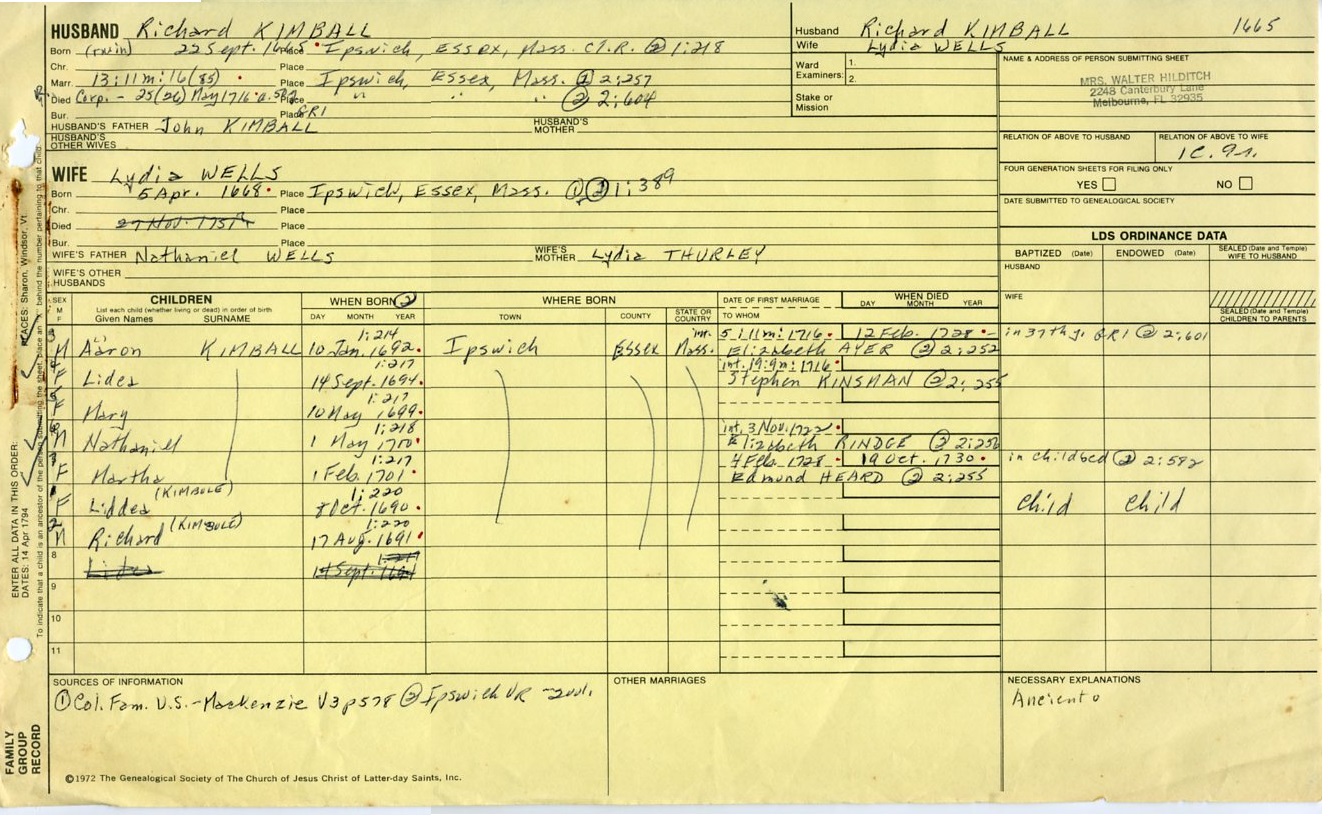 HUSBAND Richard KIMBALL
Born (twin) 22 Sept. 1665 Place Ipswich, Essex, Mass. C.T.R. ② 1:218
Chr. Place
Marr. 13:11m:16(85) Place Ipswich, Essex, Mass. ① 2:257
Died Corp. - 25(26) May 1716 a. 52 Place " " " ② 2:604
Bur. Place GR1
HUSBAND'S FATHER John KIMBALL HUSBAND'S MOTHER
HUSBAND'S OTHER WIVES
WIFE Lydia WELLS
Born 5 Apr. 1668 Place Ipswich, Essex, Mass. ① ② 1:389
Chr. Place
Died 27 Nov. Place
Bur. Place
WIFE'S FATHER Nathaniel WELLS WIFE'S MOTHER Lydia THURLEY
WIFE'S OTHER HUSBANDS
Husband Richard KIMBALL 1665
Wife Lydia WELLS
Ward Examiners: 1.
2.
Stake or Mission
NAME & ADDRESS OF PERSON SUBMITTING SHEET
MRS. WALTER HILDITCH
2248 Canterbury Lane
Melbourne, FL 32935
RELATION OF ABOVE TO HUSBAND RELATION OF ABOVE TO WIFE
1C. 9r.
FOUR GENERATION SHEETS FOR FILING ONLY
YES NO
DATE SUBMITTED TO GENEALOGICAL SOCIETY
LDS ORDINANCE DATA
BAPTIZED (Date) ENDOWED (Date) SEALED (Date and Temple) WIFE TO HUSBAND
HUSBAND
WIFE
SEALED (Date and Temple) CHILDREN TO PARENTS
SEX M F CHILDREN WHEN BORN ② WHERE BORN DATE OF FIRST MARRIAGE WHEN DIED
List each child (whether living or dead) in order of birth
Given Names SURNAME DAY MONTH YEAR TOWN COUNTY STATE OR COUNTRY TO WHOM DAY MONTH YEAR
3 1:214 int. 5:11m:1716 12 Feb. 1728 in 37th y. GR1 ② 2:601
M Aaron KIMBALL 10 Jan. 1692 Ipswich Essex Mass. Elizabeth AYER ② 2:252
4 1:217 int. 19:9m:1716
F Lidea 14 Sept. 1694 Stephen KINSMAN ② 2:255
5 1:217
F Mary 10 May 1699
6 1:218 int. 3 Nov. 1722
M Nathaniel 1 May 1700 Elizabeth RINDGE ② 2:256
7 1:217 4 Feb. 1728 19 Oct. 1730 in childbed ② 2:592
F Martha 1 Feb. 1701 Edmund HEARD ② 2:255
1 (KIMBULE) 1:220
F Liddea 8 Oct. 1690 Child Child
2 (KIMBULE) 1:220
M Richard 17 Aug. 1691
8 Lidea 14 Sept. 1694
9
10
11
SOURCES OF INFORMATION
① Col. Fam. U.S. - Mackenzie V3 p578 ② Ipswich VR - 2vol.
OTHER MARRIAGES
NECESSARY EXPLANATIONS
Ancient
©1972 The Genealogical Society of The Church of Jesus Christ of Latter-day Saints, Inc.
FAMILY GROUP RECORD
ENTER ALL DATA IN THIS ORDER:
DATES: 14 Apr 1794 PLACES: Sharon, Windsor, Vt.
To indicate that a child is an ancestor of the person submitting the sheet, place an "X" behind the number pertaining to that child.